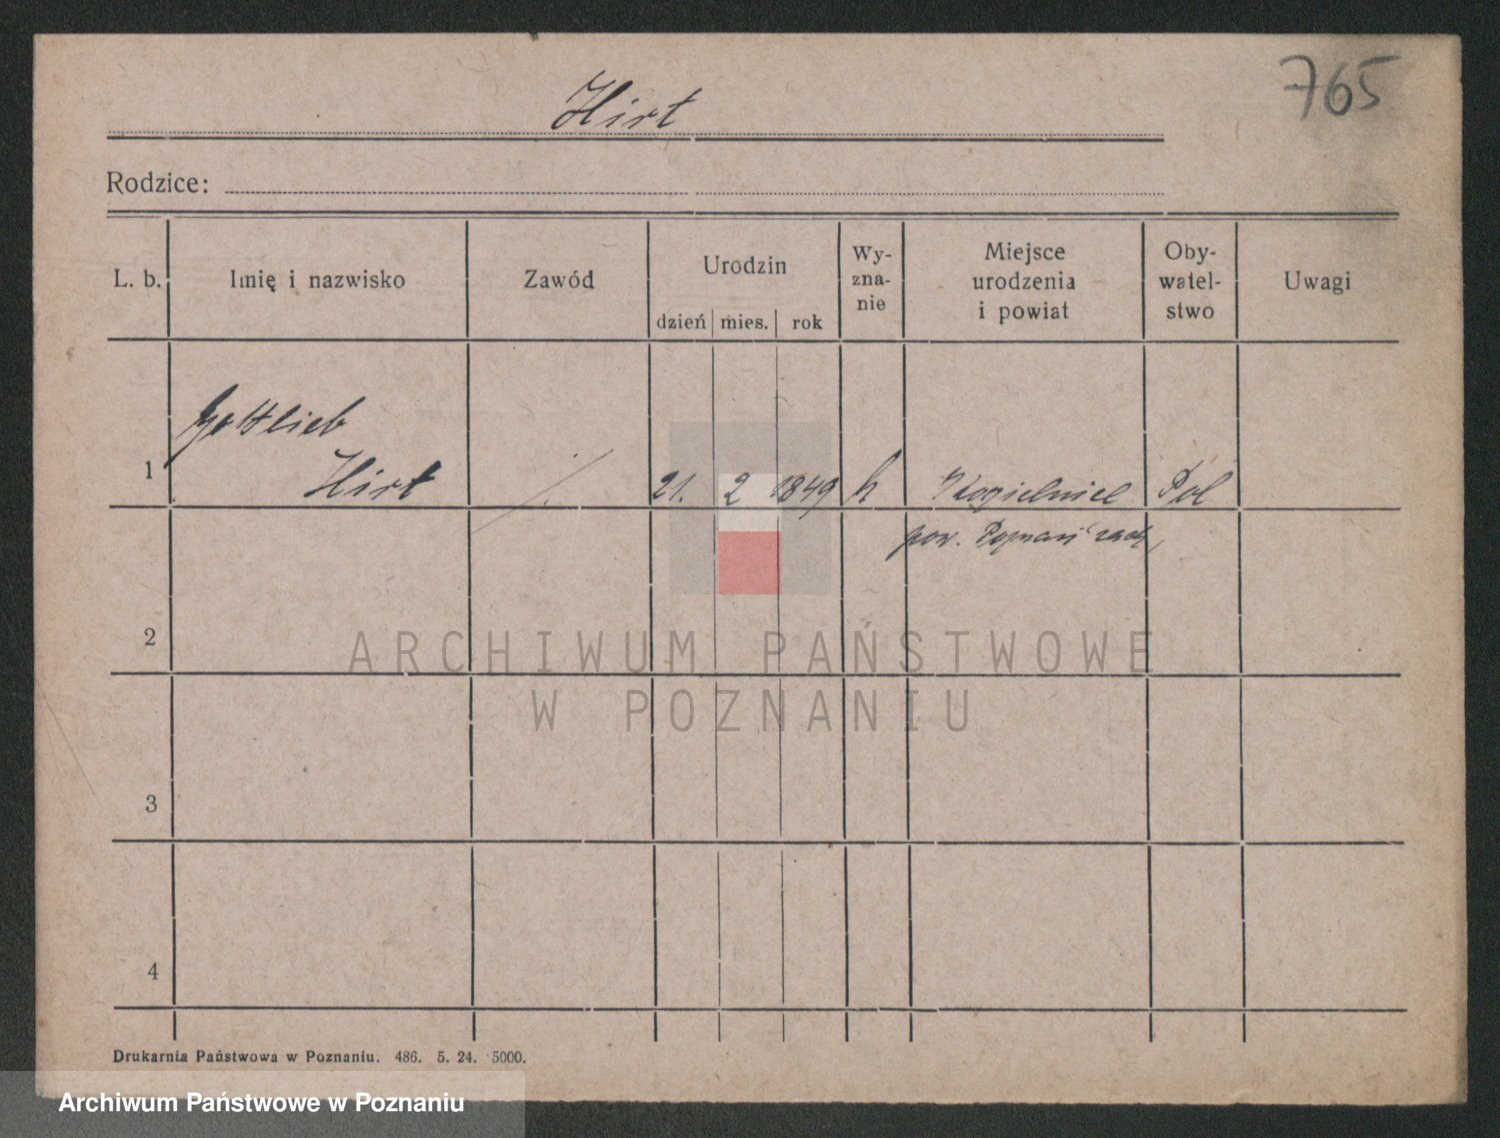 765
Hirt
Rodzice:
L. b.
Imię i nazwisko
Zawód
Urodzin
dzień
mies.
rok
Wy-
zna-
nie
Miejsce
urodzenia
i powiat
Oby-
watel-
stwo
Uwagi
Gottlieb
1 Hirt ·/. 21. 2 1849 Pol
pow. Poznań zach,
2
3
4
ARCHIWUM PAŃSTWOWE
W POZNANIU
Drukarnia Państwowa w Poznaniu. 486. 5. 24. 5000.
Archiwum Państwowe w Poznaniu